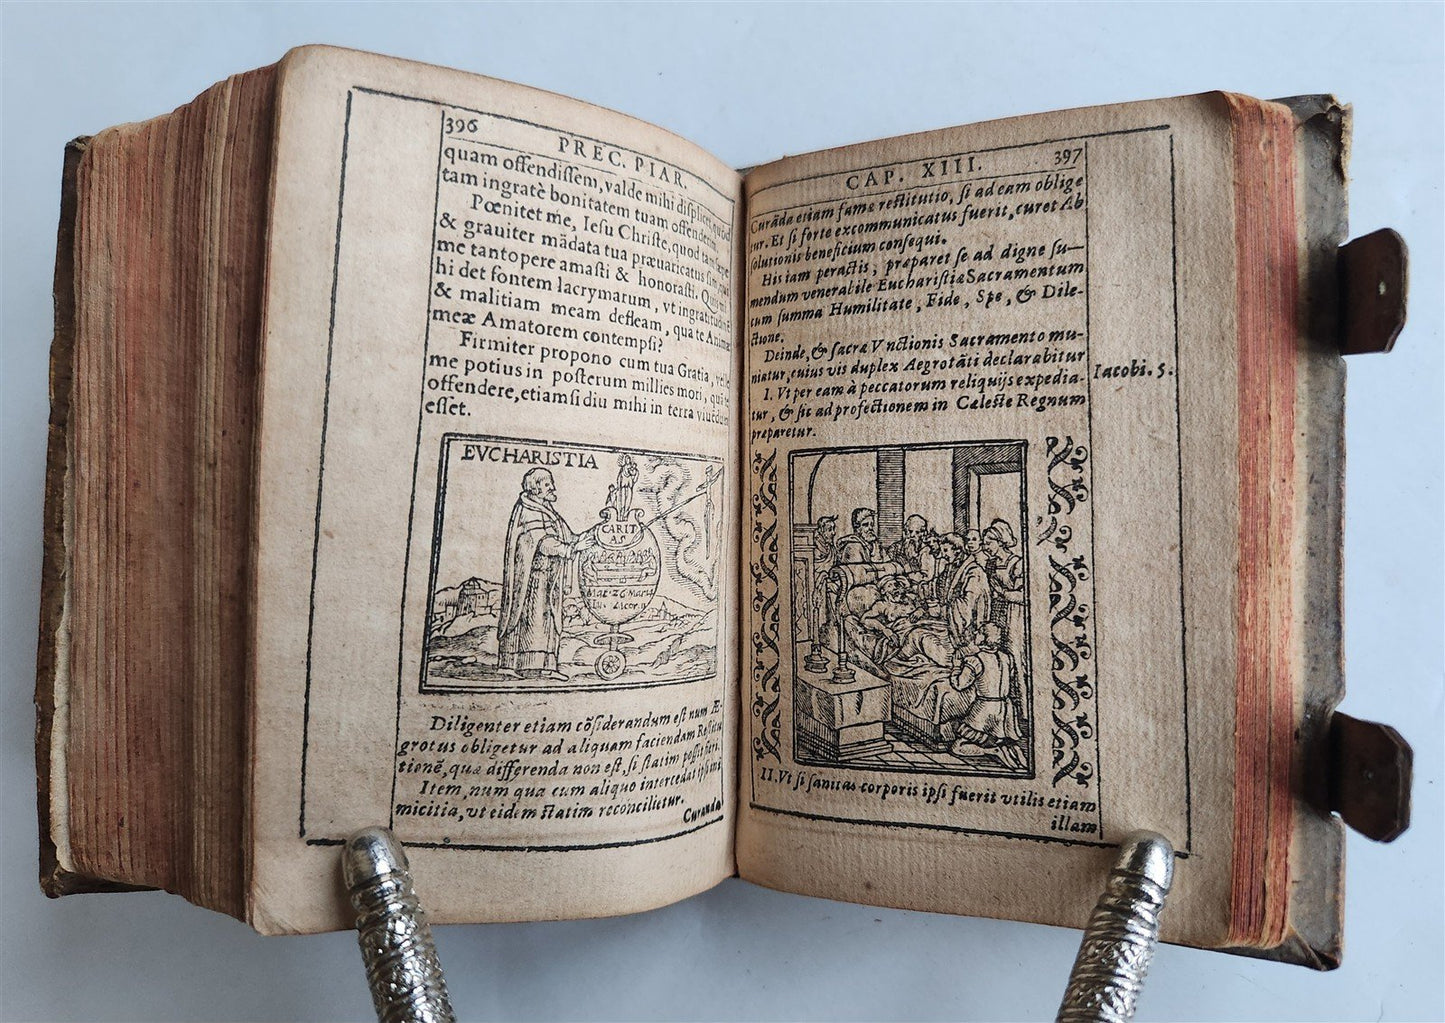 396
PREC. PIAR.
quam offendiſſem, valde mihi diſplicet, quòd
tam ingratè bonitatem tuam offenderim.
Pœnitet me, Ieſu Chriſte, quod tam ſæpe
& grauiter mādata tua præuaricatus ſim,
me tantopere amaſti & honoraſti. Quis mi
hi det fontem lacrymarum, vt ingratitudinē
& malitiam meam defleam, qua te Animæ
meæ Amatorem contempſi?
Firmiter propono cum tua Gratia, velle
me potius in poſterum millies mori,
offendere, etiamſi diu mihi in terra viuēdum
eſſet.
EVCHARISTIA
CARIT
AS
Mat. 26 Marci
Luc
Diligenter etiam cōſiderandum eſt num Æ-
grotus obligetur ad aliquam faciendam Reſtitu
tionē, quæ differenda non eſt, ſi ſtatim poſſit fieri.
Item, num qua cum aliquo intercedat ipſi ini
micitia, vt eidem ſtatim reconcilietur.
Curanda
CAP. XIII.
397
Curāda etiam famæ reſtitutio, ſi ad eam oblige
tur. Et ſi forte excommunicatus fuerit, curet Ab
ſolutionis beneficium conſequi.
His iam peractis, præparet ſe ad digne ſu—
mendum venerabile Euchariſtiæ Sacramentum
cum ſumma Humilitate, Fide, Spe, & Dile-
ctione.
Deinde, & ſacræ Vnctionis Sacramento mu-
niatur, cuius vis duplex Aegrotāti declarabitur
I. Vt per eam à peccatorum reliquijs expedia-
tur, & ſic ad profectionem in Cæleſte Regnum
præparetur.
Iacobi. 5.
II. Vt ſi ſanitas corporis ipſi fuerit vtilis etiam
illam